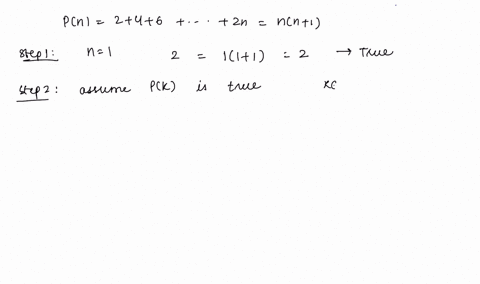 P(n) = 2+4+6 + ... + 2n = n(n+1)
Step1: n=1 2 = 1(1+1) = 2 → True
Step 2: assume P(K) is true